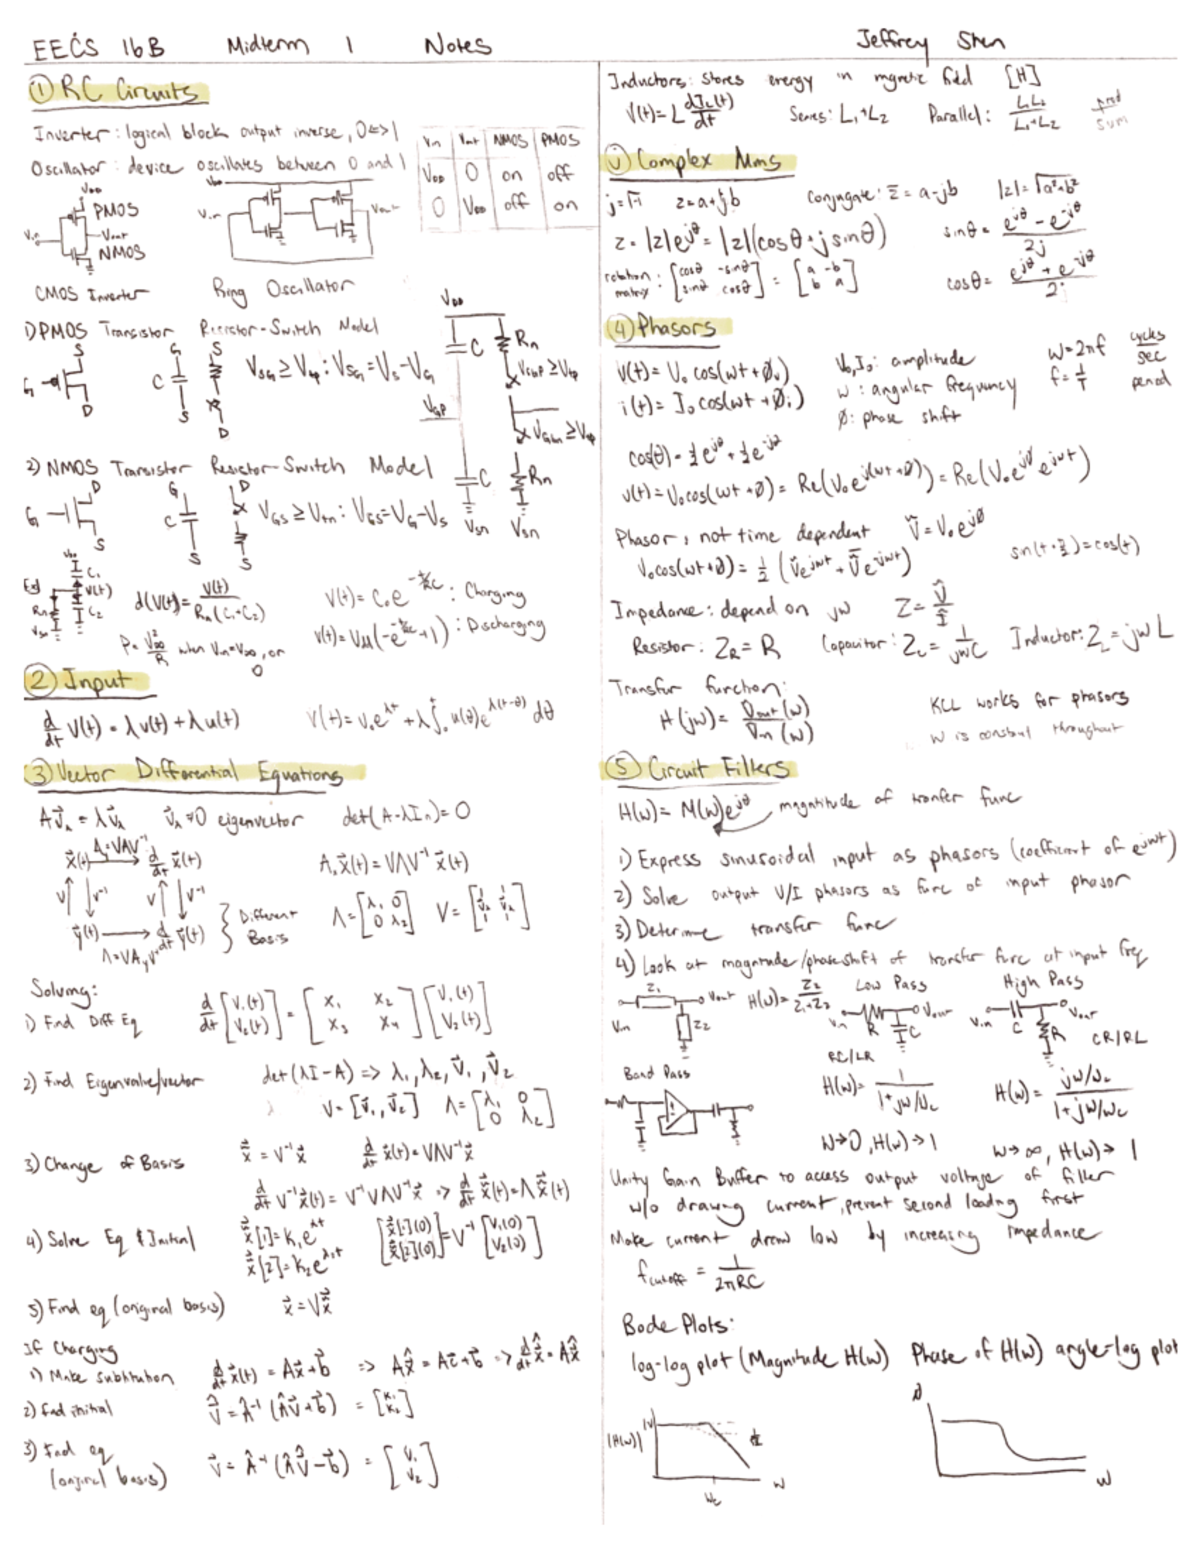 EECS 16B Midterm 1 Notes Jeffrey Shen
① RC Circuits
Inverter: logical block output inverse, 0<=>1
Oscillator: device oscillates between 0 and 1
Vin Vout NMOS PMOS
VDD 0 on off
0 VDD off on
VDD
PMOS
Vin
Vout
NMOS
VDD
Vin
Vout
CMOS Inverter Ring Oscillator
1) PMOS Transistor Resistor-Switch Model
S G S
G C
D S D
VSG ≥ Vtp: VSG = VS - VG
2) NMOS Transistor Resistor-Switch Model
D G D
G C
S S S
VGS ≥ Vtn: VGS = VG - VS
VDD
C Rn
VGP
C Rn
VSn VSn
Ex)
C1
V(t)
C2
Rn
P = VDD²/R when Vin = VDD, or 0
: Charging
: Discharging
② Input
d/dt V(t) = λv(t) + λu(t)
③ Vector Differential Equations
det(A-λIn) = 0
eigenvector
A = VΛV⁻¹
x⃗(t) d/dt x⃗(t)
V V⁻¹ V V⁻¹
y⃗(t) d/dt y⃗(t)
Different
Basis
Λ = [λ1 0
0 λ2]
Solving:
1) Find Diff Eq
d/dt [V1(t)
V2(t)] = [x1 x2
x3 x4] [V1(t)
V2(t)]
2) Find Eigenvalue/vector det(λI-A) => λ1, λ2, v⃗1, v⃗2
V = [v⃗1, v⃗2] Λ = [λ1 0
0 λ2]
3) Change of Basis
4) Solve Eq & Initial
5) Find eq (original basis)
If Charging
1) Make subtitution
2) find initial
3) Find eq
(original basis)
Inductors: Stores energy in mgnetic field [H]
V(t) = L dIL(t)/dt Series: L1+L2 Parallel: L1L2/L1+L2 prod/sum
Complex Nums
j=√-1 z=a+jb Conjugate: z̄ = a-jb |z|=√a²+b²
z = |z|e^jθ = |z|(cosθ + j sinθ)
sinθ = e^jθ - e^-jθ / 2j
rotation matrix: [cosθ -sinθ
sinθ cosθ] = [a -b
b a]
④ Phasors
i(t) = I0 cos(ωt + Øi)
V0, I0: amplitude
ω: angular frequency
Ø: phase shift
ω=2πf
f=1/T
cycles
sec
period
cos(θ) = ½e^jθ + ½e^-jθ
v(t) = V0cos(ωt+Ø) = Re(V0e^j(ωt+Ø)) = Re(V0e^jØ e^jωt)
Phasor, not time dependent Ṽ = V0e^jØ
sin(t+π/2)=cos(t)
Impedance: depend on jω
Resistor: ZR = R Capacitor: Zc = 1/jωC Inductor: ZL = jωL
Transfer function:
KCL works for phasors
ω is constant throughout
⑤ Circuit Filters
H(ω) = M(ω)e^jØ magnitude of tranfer func
1) Express sinusoidal input as phasors (coefficient of e^jωt)
2) Solve output V/I phasors as func of input phasor
3) Determine transfer func
4) Look at magnitude/phase shift of transfer func at input freq
Z1
Vout
Vin
Z2
H(ω) = Z2/Z1+Z2
Low Pass
Vin
R C
Vout
RC/LR
High Pass
Vin
C R
Vout
CR/RL
Band Pass
H(ω) = 1/1+jω/ωc
H(ω) = jω/ωc / 1+jω/ωc
ω→0, H(ω)→1
ω→∞, H(ω)→1
Unity Gain Buffer to access output voltage of filter
w/o drawing current, prevent second loading first
Make current draw low by increasing impedance
fcutoff = 1/2πRC
Bode Plots:
log-log plot (Magnitude H(ω)) Phase of H(ω) angle-log plot
|H(ω)|
ωc
ω
ω